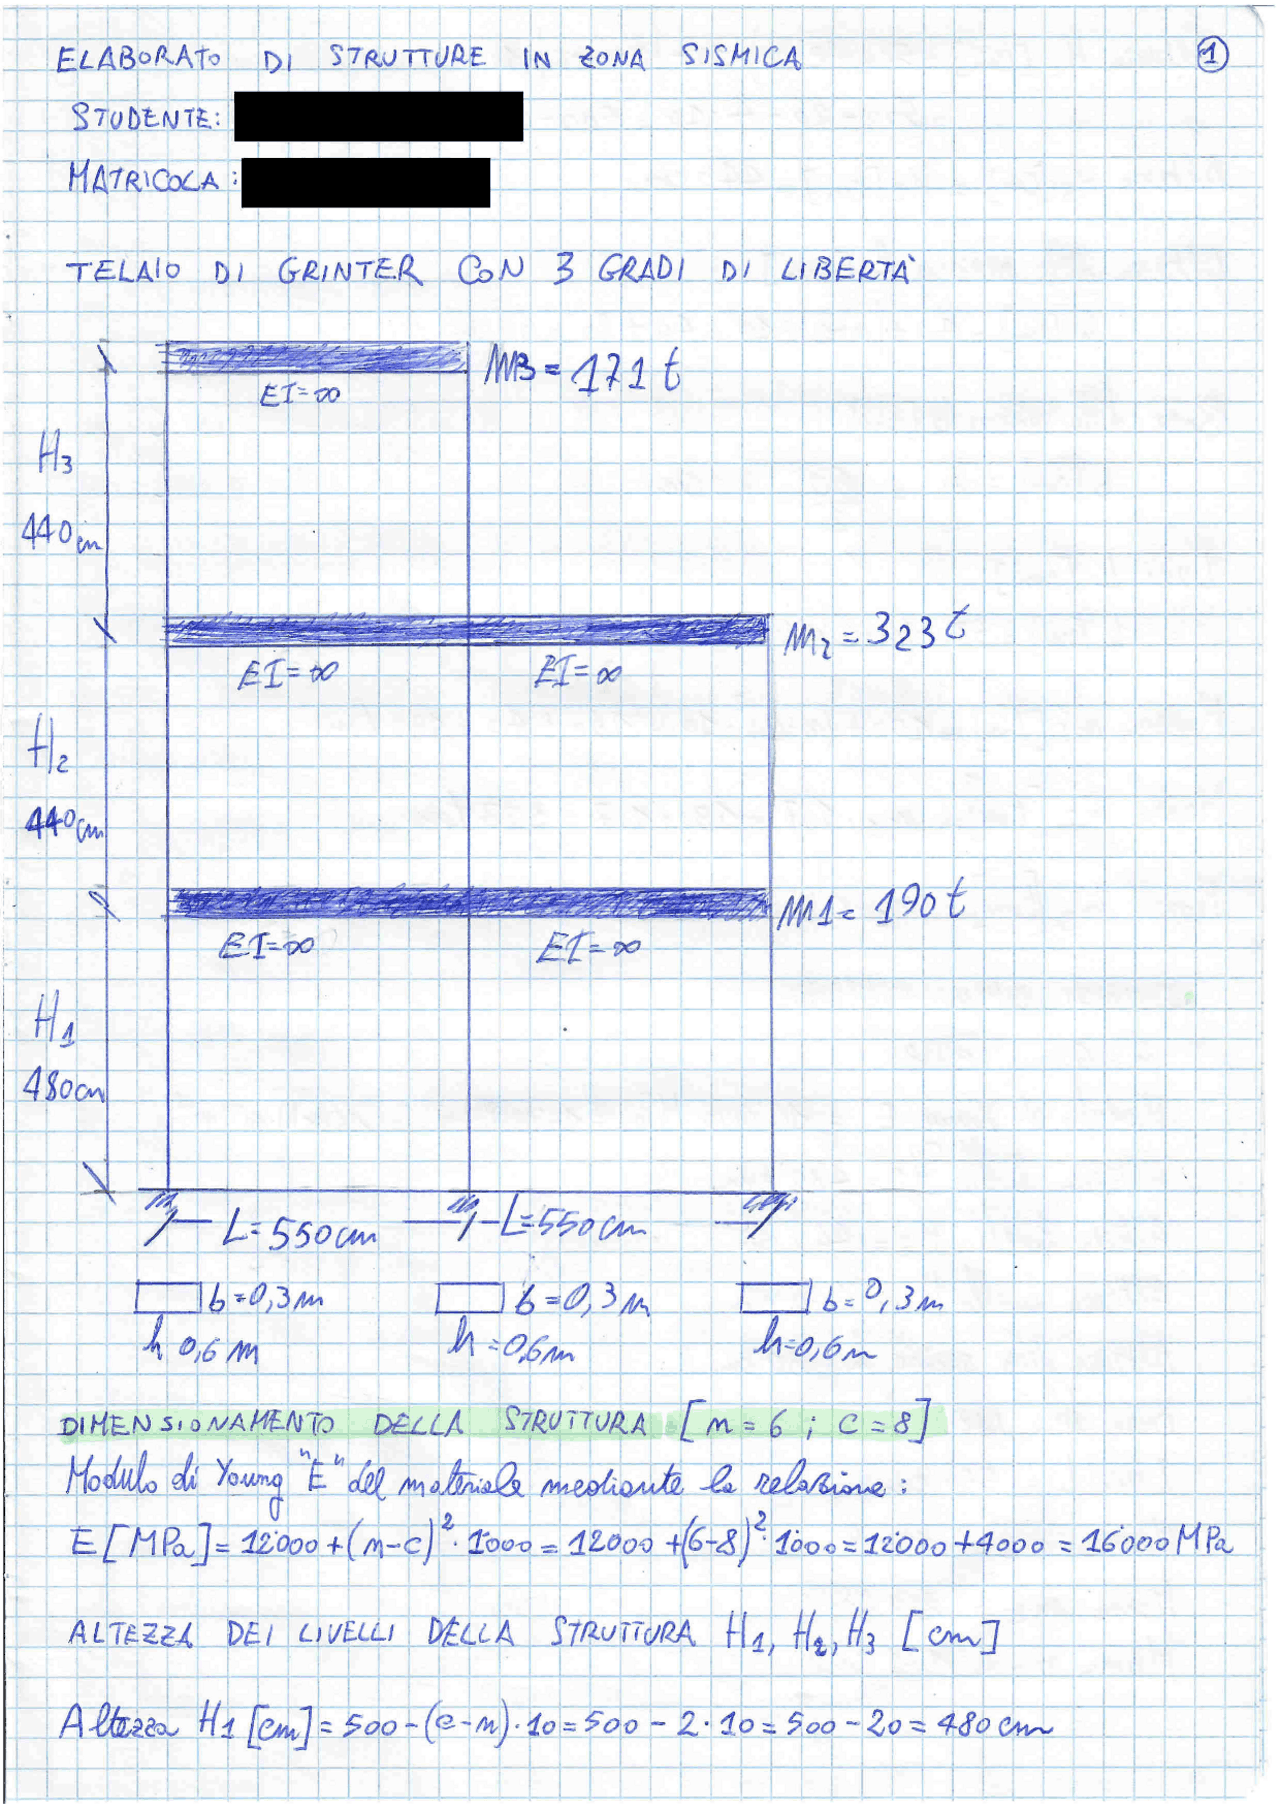 ELABORATO DI STRUTTURE IN ZONA SISMICA
1
STUDENTE:
MATRICOLA:
TELAIO DI GRINTER CON 3 GRADI DI LIBERTÀ
M3 = 171 t
EI=∞
H3
440cm
m2 = 323 t
EI=∞ EI=∞
H2
440cm
M1= 190 t
EI=∞ EI=∞
H1
480cm
L=550cm L=550cm
b=0,3m b=0,3m b=0,3m
h 0,6 m h=0,6m h=0,6m
DIMENSIONAMENTO DELLA STRUTTURA [n=6 ; c=8]
Modulo di Young "E" del materiale mediante la relazione:
E[MPa]=12000+(n-c)²·1000=12000+(6-8)²·1000=12000+4000=16000MPa
ALTEZZA DEI LIVELLI DELLA STRUTTURA H1, H2, H3 [cm]
Altezza H1 [cm]=500-(c-n)·10=500-2·10=500-20=480cm